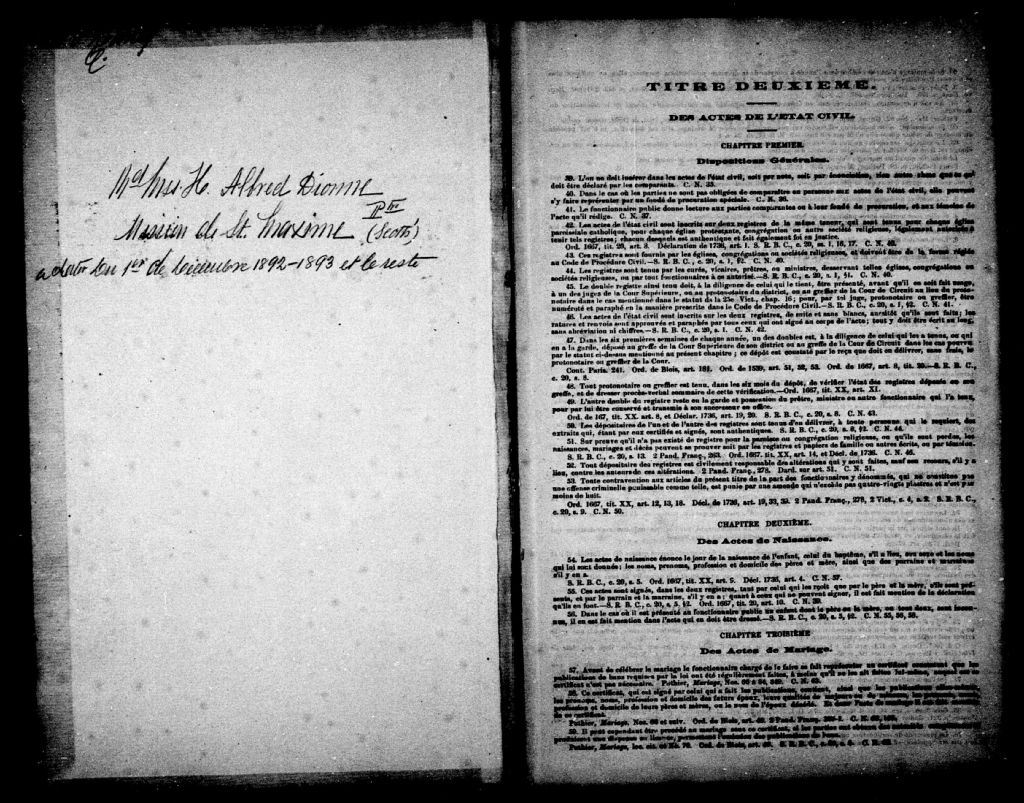 H. Alfred Dionne
Ptre
Mission de St. Maxime (Scott)
du 1er de Décembre 1892-1893 et le reste
TITRE DEUXIEME.
DES ACTES DE L'ETAT CIVIL.
CHAPITRE PREMIER.
Dispositions Générales.
39. L'on ne doit insérer dans les actes de l'état civil, soit par note, soit par énonciation, rien autre chose que ce qu'il
doit être déclaré par les comparants. C. N. 35.
40. Dans le cas où les parties ne sont pas obligées de comparaître en personne aux actes de l'état civil, elle peuvent
s'y faire représenter par un fondé de procuration spéciale. C. N. 36.
41. Le fonctionnaire public donne lecture aux parties comparantes ou à leur fondé de procuration, et aux témoins de
l'acte qu'il rédige. C. N. 37.
42. Les actes de l'état civil sont inscrits sur deux registres de la même teneur, qui sont tenus pour chaque église
paroissiale catholique, pour chaque église protestante, congrégation ou autre société religieuse, légalement autorisée à
tenir tels registres; chacun desquels est authentique et fait également foi en justice.
Ord. 1667, tit. 20, art. 8. Déclaration de 1736, art. 1. S. R. B. C., c. 20, ss. 1, 16, 17. C. N. 40.
43. Ces registres sont fournis par les églises, congrégations ou sociétés religieuses, et doivent être de la forme réglée
au Code de Procédure Civil.—S. R. B. C., c. 20, s. 1, §2. C. N. 40.
44. Les registres sont tenus par les curés, vicaires, prêtres, ou ministres, desservant telles églises, congrégations ou
sociétés religieuses, ou par tout fonctionnaires à ce autorisé.—S. R. B. C., c. 20, s. 1, §1. C. N. 40.
45. Le double registre ainsi tenu doit, à la diligence de celui qui le tient, être présenté, avant qu'il en soit fait usage,
à un des juges de la Cour Supérieure, ou au protonotaire du district, ou au greffier de la Cour de Circuit au lieu du proto-
notaire dans le cas mentionné dans le statut de la 25e Vict., chap. 16; pour, par tel juge, protonotaire ou greffier, être
numéroté et paraphé en la manière prescrite dans le Code de Procédure Civil.—S. R. B. C., c. 20, s. 1, §2. C. N. 41.
46. Les actes de l'état civil sont inscrits sur les deux registres, de suite et sans blancs, aussitôt qu'ils sont faits; les
ratures et renvois sont approuvés et paraphés par tous ceux qui ont signé au corps de l'acte; tout y doit être écrit au long,
sans abréviation ni chiffres.—S. R. B. C., c. 20, s. 1. C. N. 42.
47. Dans les six premières semaines de chaque année, un des doubles est, à la diligence de celui qui les a tenus, ou qui
en a la garde, déposé au greffe de la Cour Supérieure de son district ou au greffe de la Cour de Circuit dans les cas pourvu
par le statut ci-dessus mentionné au présent chapitre; ce dépôt est constaté par le reçu que doit en délivrer, sans frais, le
protonotaire ou greffier de la Cour.
Cout. Paris. 241. Ord. de Blois, art. 181. Ord. de 1539, art. 51, 52, 53. Ord. de 1667, art. 8, tit. 20.—S. R. B. C.,
c. 20, s. 8.
48. Tout protonotaire ou greffier est tenu, dans les six mois du dépôt, de vérifier l'état des registres déposés en son
greffe, et de dresser procès-verbal sommaire de cette vérification.—Ord. 1667, tit. XX, art. XI.
49. L'autre double du registre reste en la garde et possession du prêtre, ministre ou autre fonctionnaire qui l'a tenu,
pour par lui être conservé et transmis à son successeur en office.
Ord. de 167, tit. XX. art. 8, et Déclar. 1736, art. 19, 20. S. R. B. C., c. 20, s. 8. C. N. 43.
50. Les dépositaires de l'un et de l'autre des registres sont tenus d'en délivrer, à toute personne qui le requiert, des
extraits qui, étant par eux certifiés et signés, sont authentiques. S. R. B. C., c. 20, s. 8, §2. C. N. 44.
51. Sur preuve qu'il n'a pas existé de registre pour la paroisse ou congrégation religieuse, ou qu'ils sont perdus, les
naissances, mariages et décès peuvent se prouver soit par les registres et papiers de famille ou autres écrits, ou par témoins.
S. R. B. C., c. 20, s. 13. 2 Pand. Franç., 263. Ord. 1667. tit. XX, art. 14, et Décl. de 1736. C. N. 46.
52. Tout dépositaire des registres est civilement responsable des altérations qui y sont faites, sauf son recours, s'il y a
lieu, contre les auteurs de ces altérations. 2 Pand. Franç., 278. Dard. sur art. 51. C. N. 51.
53. Toute contravention aux articles du présent titre de la part des fonctionnaires y dénommés, qui ne constitue pas
une offense criminelle punissable comme telle, est punie par une amende qui n'excède pas quatre-vingts piastres et n'est pas
moins de huit.
Ord. 1667, tit. XX, art. 12, 13, 18. Décl. de 1736, art. 19, 33, 39. 2 Pand. Franç., 278, 2 Vict., c. 4, s. 2. S. R. B. C.,
c. 20, s. 9. C. N. 50.
CHAPITRE DEUXIÈME.
Des Actes de Naissance.
54. Les actes de naissance énonce le jour de la naissance de l'enfant, celui du baptême, s'il a lieu, son sexe et les noms
qui lui sont donnés; les noms, prenoms, profession et domicile des pères et mère, ainsi que des parrains et marraines
s'il y en a.
S. R. B. C., c. 20, s. 5. Ord. 1667, tit. XX, art. 9. Décl. 1736, art. 4. C. N. 57.
55. Ces actes sont signés, dans les deux registres, tant par celui qui les reçoit que par le père et la mère, s'ils sont pré-
sents, et par le parrain et la marraine, s'il y en a; quant à ceux qui ne peuvent signer, il est fait mention de la déclaration
qu'ils en font.—S. R. B. C., c. 20, s. 5. §2. Ord. 1667, tit. 20, art. 10. C. N. 39.
56. Dans le cas où il est présenté au fonctionnaire public un enfant dont le père ou la mère, ou tous deux, sont incon-
nus, il en est fait mention dans l'acte qui en doit être dressé.—S. R. B. C., c. 20, s. 5, §2. C. N. 55, 56, 58.
CHAPITRE TROISIÈME
Des Actes de Mariage.
57. Avant de célébrer le mariage le fonctionnaire chargé de le faire se fait représenter un certificat constatant que les
publications de bans requises par la loi ont été régulièrement faites, à moins qu'il ne les ait faites lui-même, auquel cas ce
certificat n'est pas nécessaire. Pothier, Mariage, Nos. 66 à 84,
58. Ce certificat, qui est signé par celui qui a fait les publications, contient, ainsi que les publications
les prénoms, noms, profession et domicile des futurs époux, leurs qualités de
profession et domicile de leurs pères et mères, ou le nom de l'époux décédé. Et dans l'acte de mariage il est fait mention
de ce certificat.
Pothier, Mariage, Nos. 66 et suiv. Ord. de Blois, art. 40. 2 Pand. Franç.
59. Il peut cependant être procédé au mariage sans ce certificat, si les parties
Pothier, Mariage, loc. cit. et No. 70. Ord. de Blois, art. 40. S. R. B. C., c. 20,